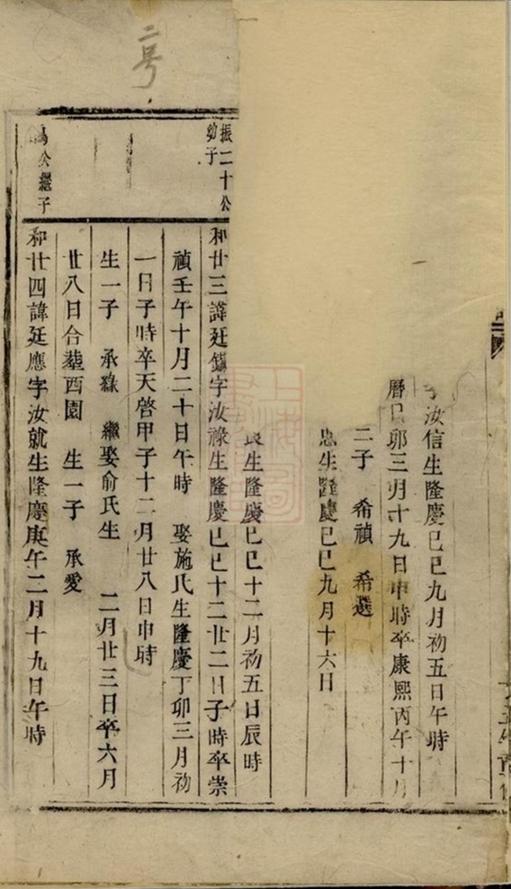 二号
汝信生隆慶己巳九月初五日午時
曆己卯三月十九日申時卒康熙丙午十月
二子　希禎　希選
忠生隆慶己巳九月十六日
良生隆慶己巳十二月初五日辰時
振二十公
幼子
和廿三諱廷鎮字汝祿生隆慶己巳十二廿二日子時卒崇
禎壬午十月二十日午時　娶施氏生隆慶丁卯三月初
一日子時卒天啓甲子十二月廿八日申時
生一子　承祿　繼娶俞氏生　二月廿三日卒六月
廿八日合葬西園　生一子　承愛
公繼子
和廿四諱廷應字汝就生隆慶庚午二月十九日午時